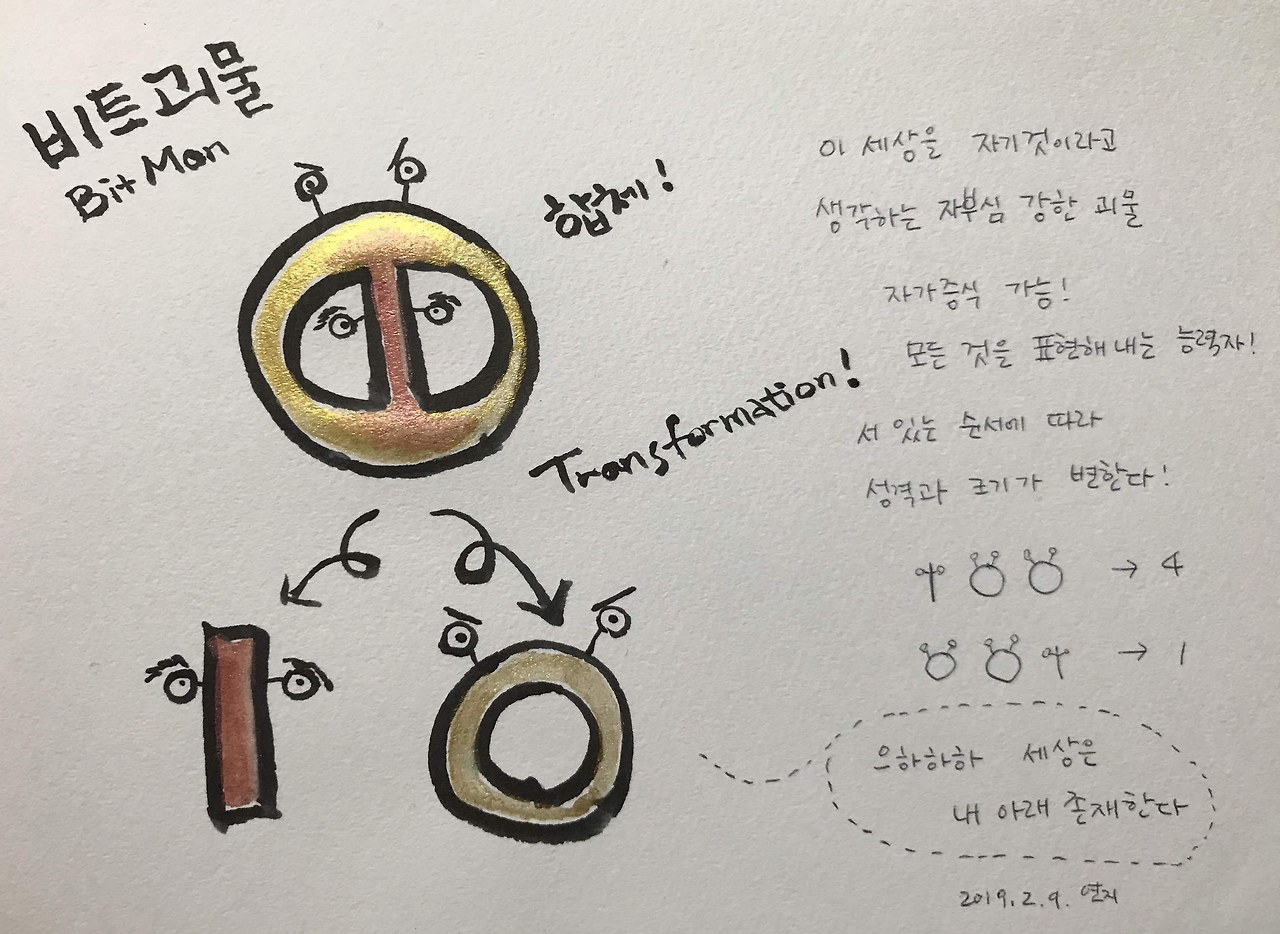 비트괴물
Bit Mon
합체!
Transformation!
이 세상을 자기것이라고
생각하는 자부심 강한 괴물
자가증식 가능!
모든 것을 표현해 내는 능력자!
서 있는 순서에 따라
성격과 크기가 변한다!
→ 4
→ 1
으하하하 세상은
내 아래 존재한다
2019.2.9. 연지